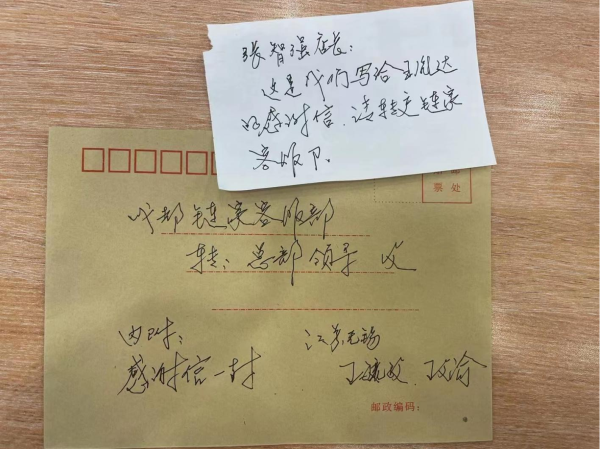 张智强店长：
这是我们写给王胤达
的感谢信，请转交链家
客服卩。
票处
成都链家客服部
转：总部领导 收
内附：
感谢信一封
江苏无锡
王 王
邮政编码：